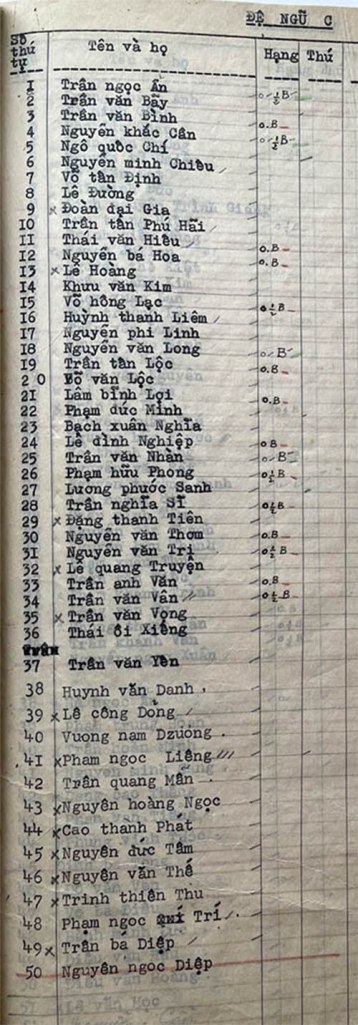 ĐỆ NGŨ C
Số thứ tự Tên và họ Hạng Thú
1 Trần ngọc Ẩn
2 Trần văn Bẫy o ½ B
3 Trần văn Bình
4 Nguyễn khắc Cần o.B
5 Ngô quốc Chí o ½ B
6 Nguyễn minh Chiêu
7 Võ tấn Định
8 Lê Đường
9 x Đoàn đại Gia
10 Trần tấn Phú Hãi
11 Thái văn Hiếu
12 Nguyễn bá Hoa o.B
13 x Lê Hoàng o.B
14 Khưu văn Kim
15 Võ hồng Lạc
16 Huỳnh thanh Liêm o ½ B
17 Nguyễn phi Linh
18 Nguyễn văn Long
19 Trần tấn Lộc o B
20 Võ văn Lộc o.B
21 Lâm bỉnh Lợi
22 Phạm đức Minh o.B
23 Bạch xuân Nghĩa
24 Lê đình Nghiệp o B
25 Trần văn Nhàn o B
26 Phạm hữu Phong o ½ B
27 Lương phước Sanh
28 Trần nghĩa Sĩ o ½ B
29 x Đặng thanh Tiên
30 Nguyễn văn Thơm o.B
31 Nguyễn văn Trị o ½ B
32 x Lê quang Truyện
33 Trần anh Văn o.B
34 Trần văn Vân o ½ B
35 x Trần văn Vọng
36 Thái ôi Xiếng
37 Trần văn Yên
38 Huynh văn Danh
39 x Lê công Dòng
40 Vuong nam Dzuong
41 x Pham ngọc Liêng
42 Trần quang Mẫn
43 x Nguyên hoàng Ngọc
44 x Cao thanh Phát
45 x Nguyên đức Tâm
46 x Nguyên văn Thế
47 x Trinh thiên Thu
48 Phạm ngọc Trí
49 x Trần bá Diệp
50 Nguyên ngọc Diệp